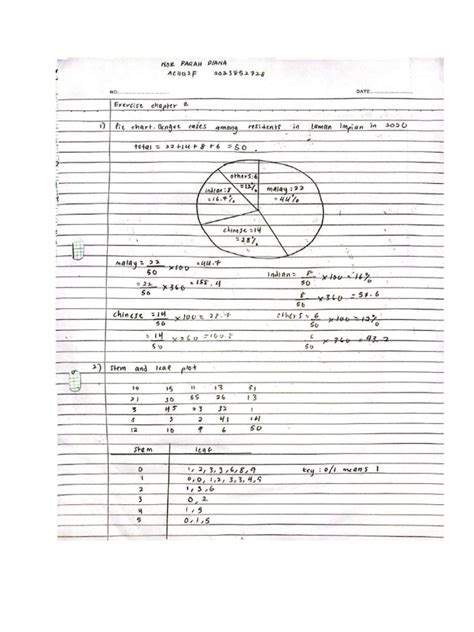 NOR FARAH DIANA
ACH02F 2023852728
NO: DATE:
Exercise chapter 2
1) Pie chart. Dengue cases among residents in Taman Impian in 2020
total = 22+14+8+6 = 50
others: 6
= 12%
indian: 8
malay: 22
= 44%
chinese = 14
= 28%
malay = 22/50 × 100 = 44%
= 22/50 × 360 = 158.4
indian = 8/50 × 100 = 16%
8/50 × 360 = 57.6
chinese = 14/50 × 100 = 28%
= 14/50 × 360 = 100.8
others = 6/50 × 100 = 12%
6/50 × 360 = 43.2
2) Stem and leaf plot
10 15 11 13 51
21 30 55 26 13
3 45 23 32 1
8 3 2 41 14
12 10 9 6 50
stem leaf
0 1, 2, 3, 3, 6, 8, 9 key: 0/1 means 1
1 0, 0, 1, 2, 3, 3, 4, 5
2 1, 3, 6
3 0, 2
4 1, 5
5 0, 1, 5